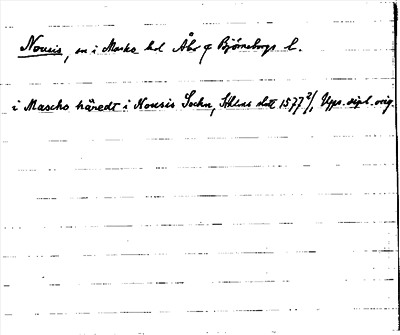 Nousis, sn i Masko hd Åbo o Björneborgs l.
i Mascho häredt i Nousis Sochn, Åbos slott 1577 2/1, Upps. dipl. orig.